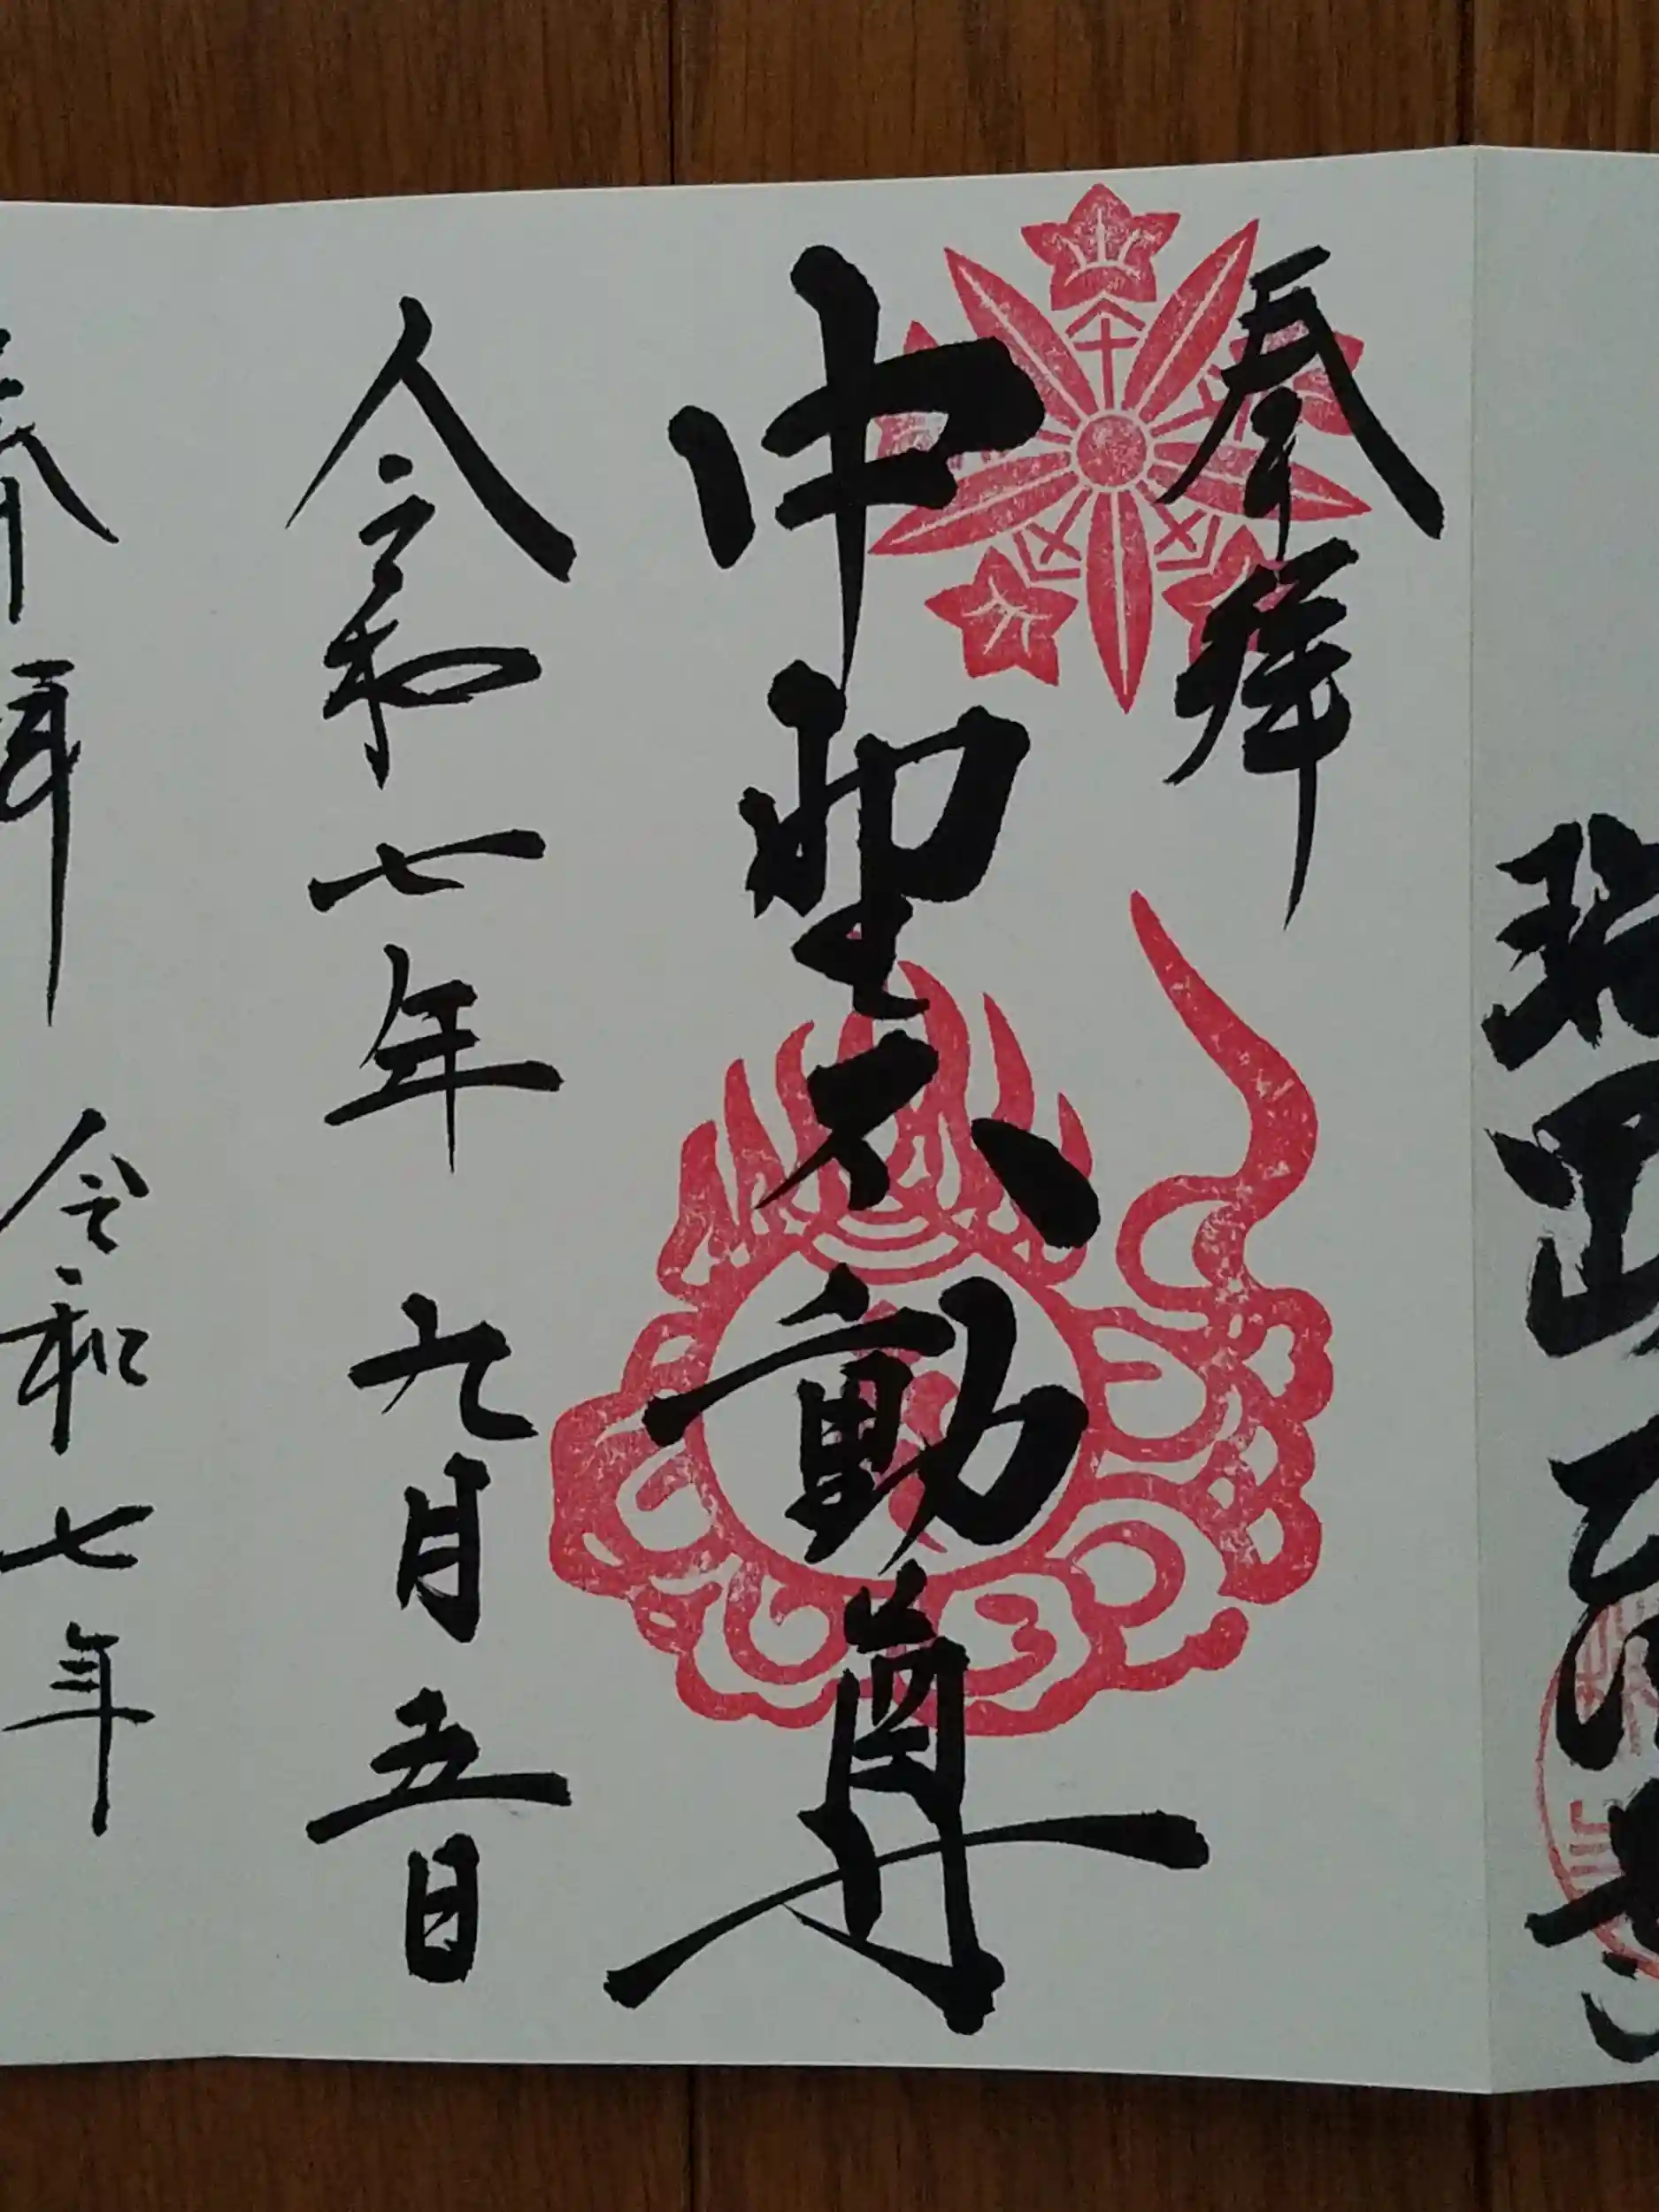 奉拝
中聖不動尊
令和七年 九月五日
奉拝 令和七年